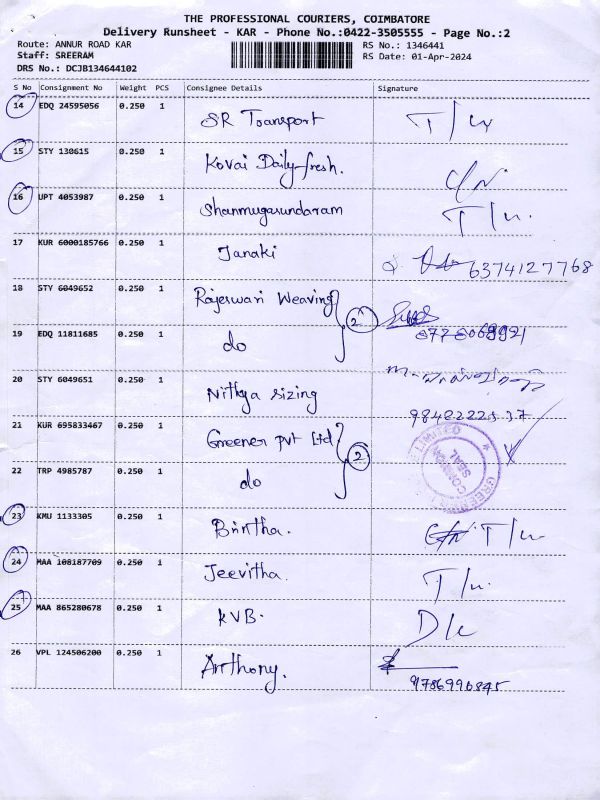 THE PROFESSIONAL COURIERS, COIMBATORE
Delivery Runsheet - KAR - Phone No.:0422-3505555 - Page No.:2
Route: ANNUR ROAD KAR
Staff: SREERAM
DRS No.: DCJB134644102
RS No.: 1346441
RS Date: 01-Apr-2024
S No Consignment No Weight PCS Consignee Details Signature
14 EDQ 24595056 0.250 1 SR Transport T/
15 STY 130615 0.250 1 Kovai Daily fresh.
16 UPT 4053987 0.250 1 Shanmugasundaram T/
17 KUR 6000185766 0.250 1 Janaki 6374127768
18 STY 6049652 0.250 1 Rajeswari Weaving 2
19 EDQ 11811685 0.250 1 do
20 STY 6049651 0.250 1 Nithya sizing
21 KUR 695833467 0.250 1 Greener pvt Ltd 2
22 TRP 4985787 0.250 1 do
COMMON SEAL
23 KMU 1133305 0.250 1 Brintha. T/
24 MAA 108187709 0.250 1 Jeevitha. T/
25 MAA 865280678 0.250 1 KVB. D/c
26 VPL 124506200 0.250 1 Anthony.
9786996845